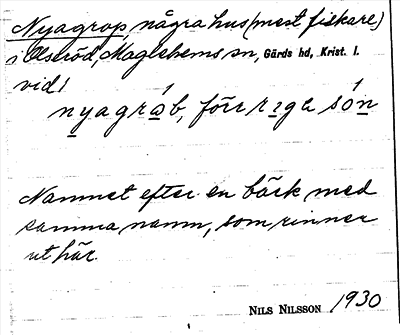 Nyagrop, några hus (mest fiskare)
i Olseröd, Maglehems sn, Gärds hd, Krist. l.
vid/
nyagráb, förr
són
Namnet efter en bäck med
samma namn, som rinner
ut här.
NILS NILSSON 1930